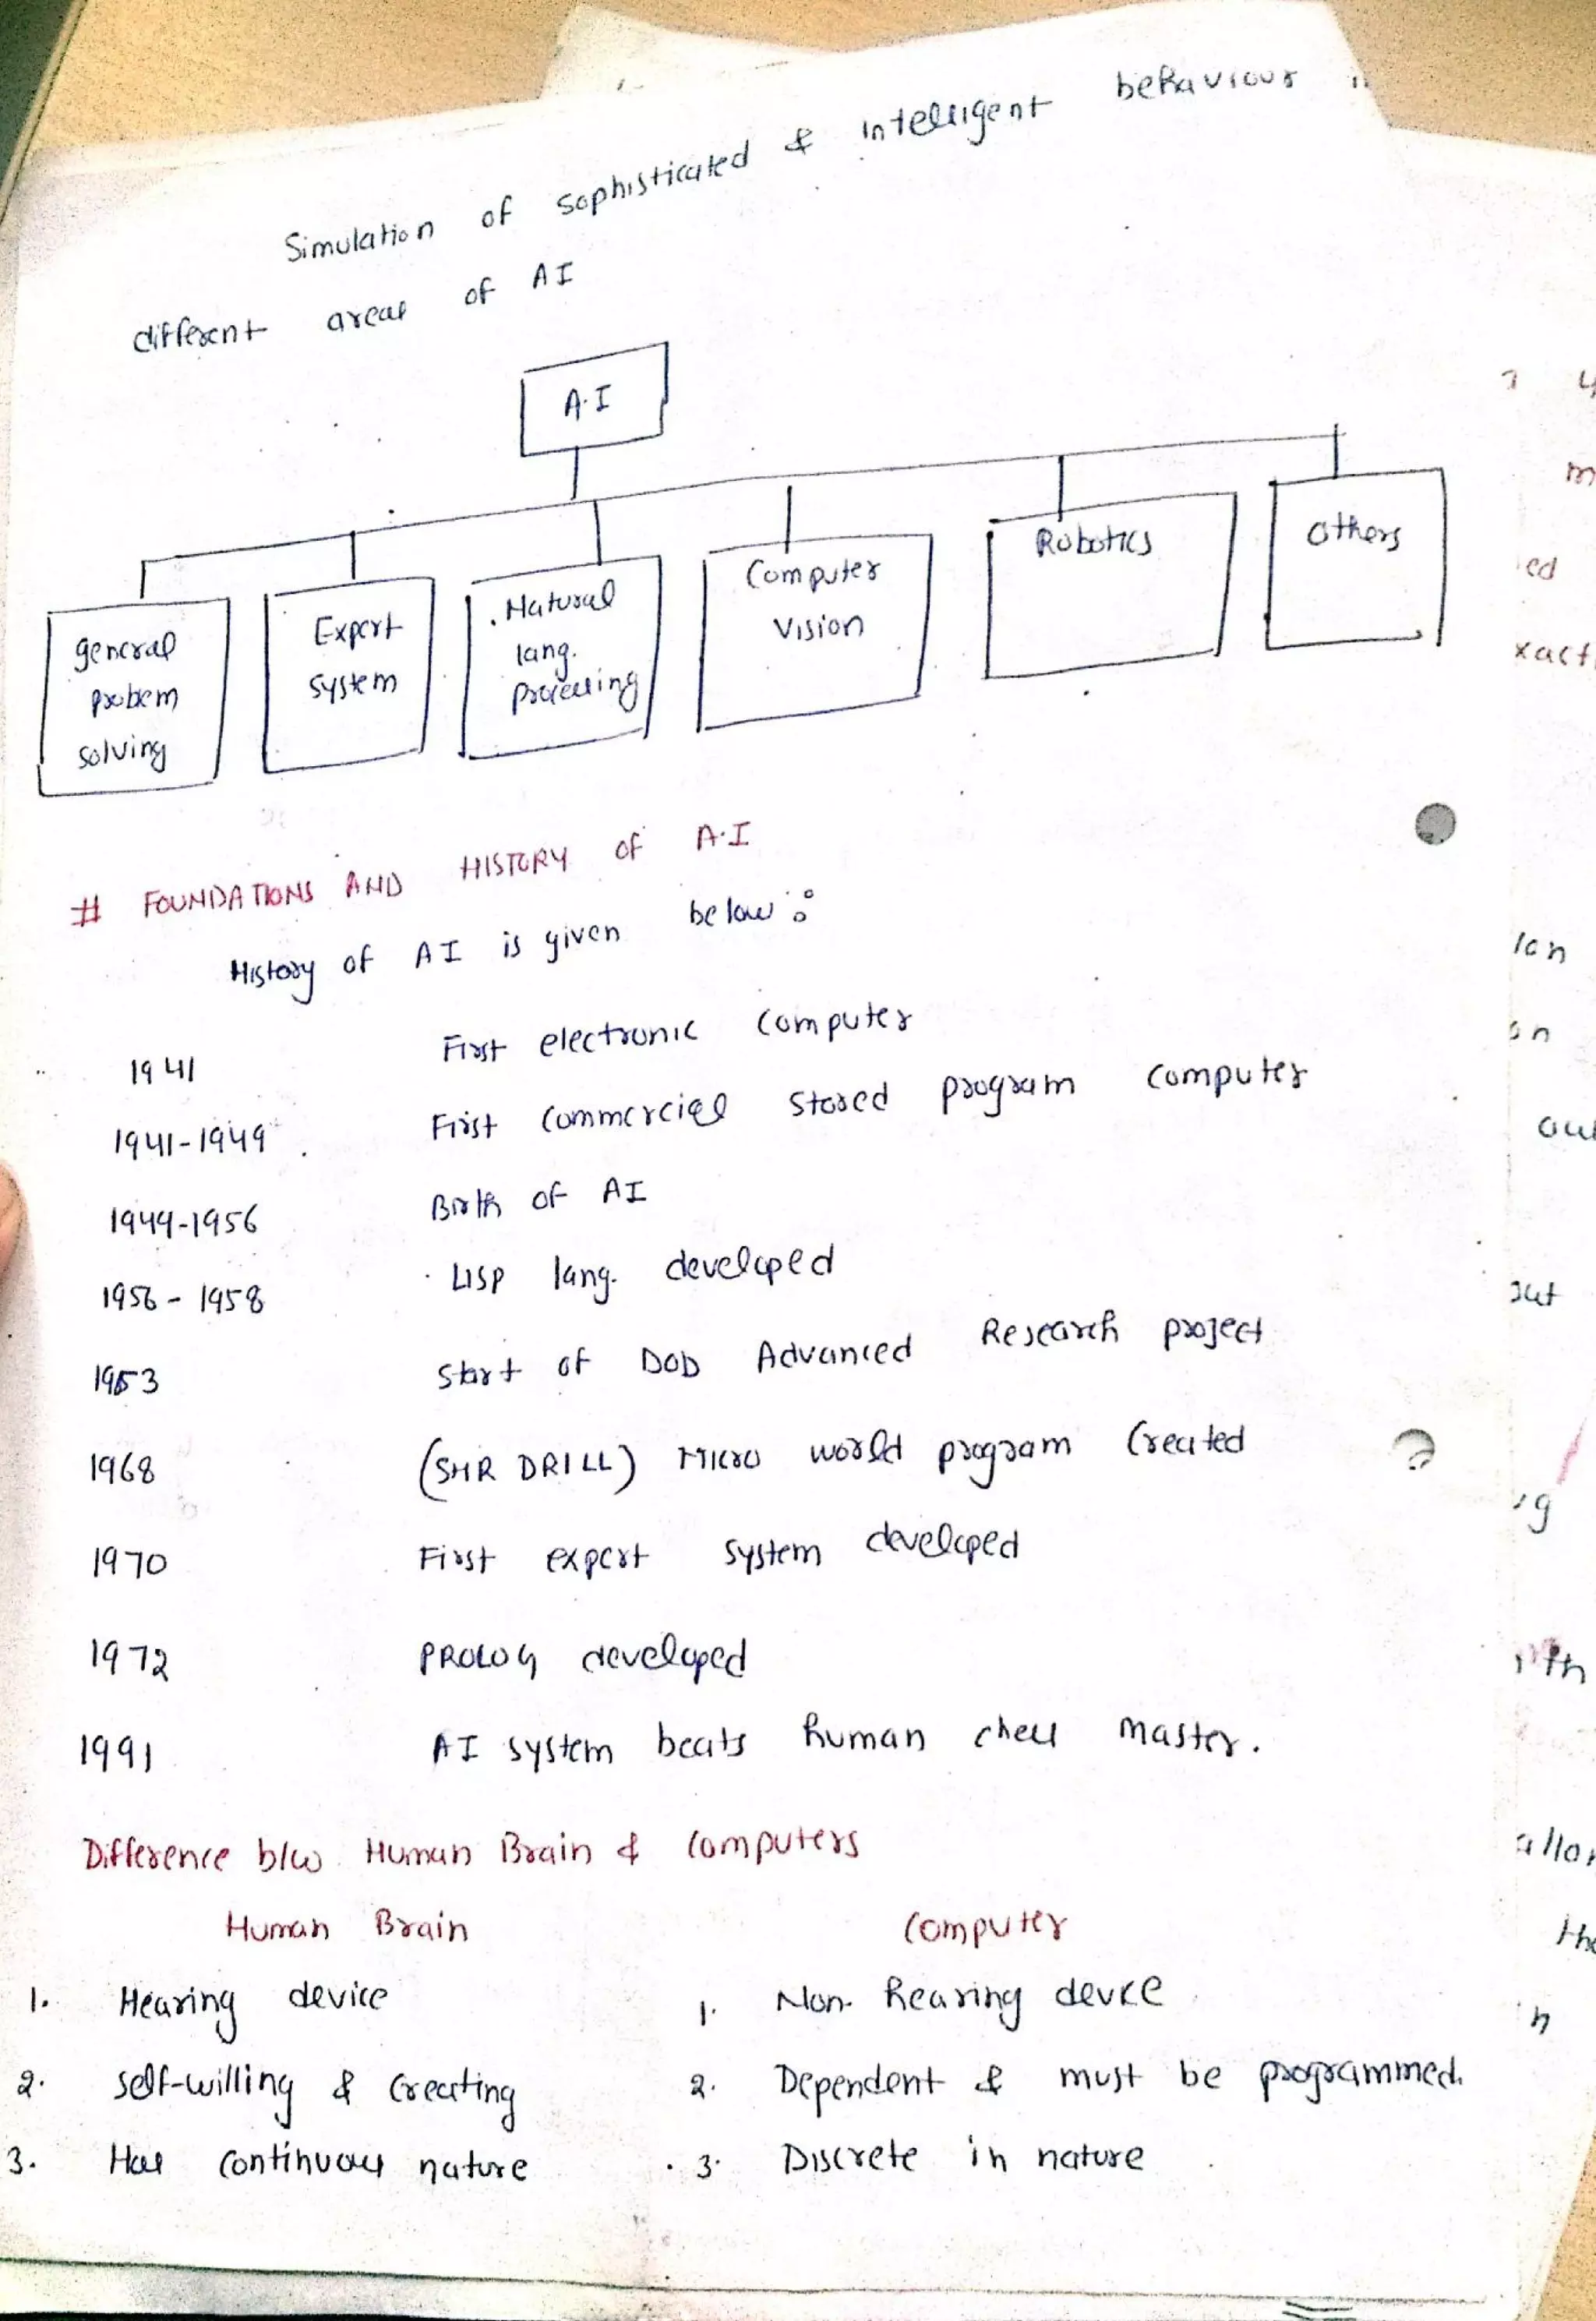 Simulation of sophisticated & intelligent behaviour
different areas of AI
A.I
general probem solving
Expert system
Natural lang. processing
Computer Vision
Robotics
Others
# FOUNDATIONS AND HISTORY OF A.I
History of AI is given below:
1941 First electronic computer
1941-1949 First commercial stored program computer
1949-1956 Birth of AI
1956-1958 LISP lang. developed
1953 Start of DOD Advanced Research project
1968 (SHR DRILL) Micro world program created
1970 First expert system developed
1972 PROLOG developed
1991 AI system beats human chess master.
Difference b/w Human Brain & Computers
Human Brain Computer
1. Hearing device 1. Non-hearing devce
2. Self-willing & Creating 2. Dependent & must be programmed.
3. Has continuous nature 3. Discrete in nature